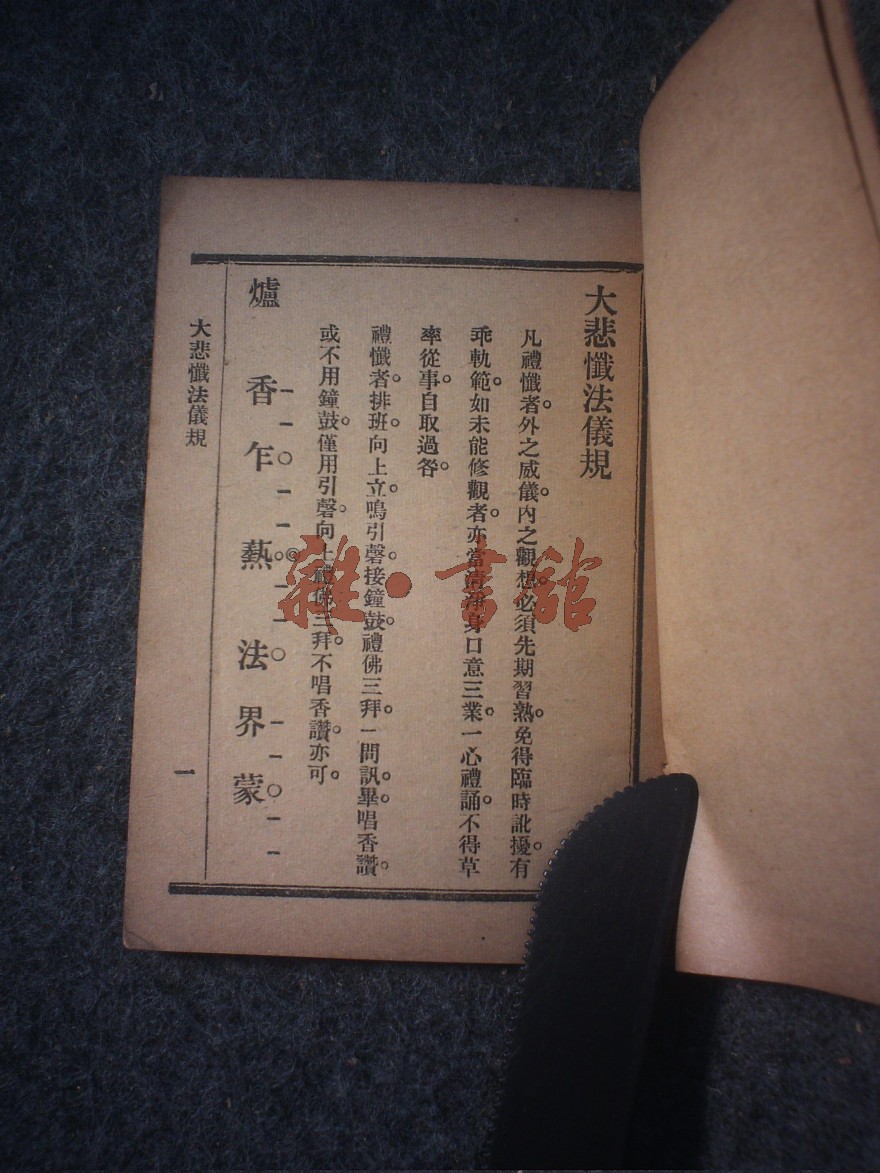 大悲懺法儀規
凡禮懺者。外之威儀。內之觀想。必須先期習熟。免得臨時訛擾。有
乖軌範。如未能修觀者。亦當清淨身口意三業。一心禮誦。不得草
率從事。自取過咎。
禮懺者。排班。向上立。鳴引磬。接鐘鼓。禮佛三拜。一問訊。畢。唱香讚。
或不用鐘鼓。僅用引磬。向上禮佛三拜。不唱香讚。亦可。
爐香乍熱法界蒙
大悲懺法儀規
一
雜·書館